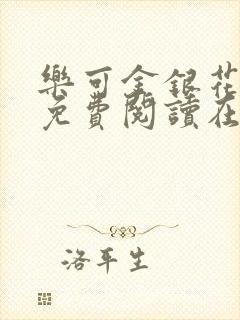 樂可金銀花
免費閱讀在
洛平生